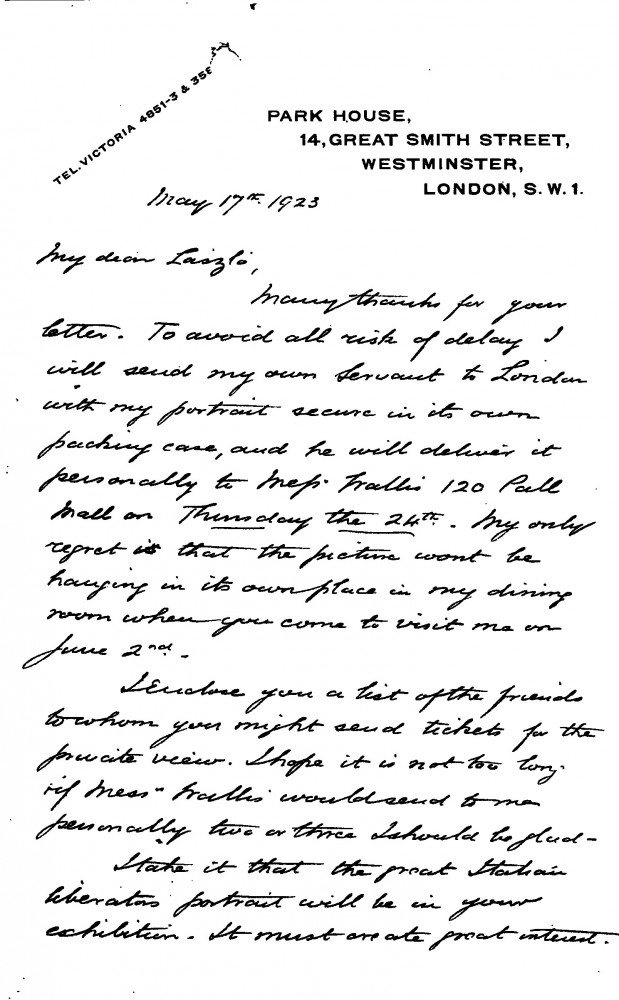 TEL. VICTORIA 4851-3 & 358
PARK HOUSE,
14, GREAT SMITH STREET,
WESTMINSTER,
LONDON, S.W.1.
May 17th. 1923
My dear László,
Many thanks for your
letter. To avoid all risk of delay I
will send my own servant to London
with my portrait secure in its own
packing case, and he will deliver it
personally to Messrs Wallis 120 Pall
Mall on Thursday the 24th. My only
regret is that the picture wont be
hanging in its own place in my dining
room when you come to visit me on
June 2nd.
I Enclose you a list of the friends
to whom you might send tickets for the
private view. I hope it is not too long.
if Messrs Wallis would send to me
personally two or three I should be glad -
I take it that the great Italian
liberators portrait will be in your
exhibition. It must create great interest.